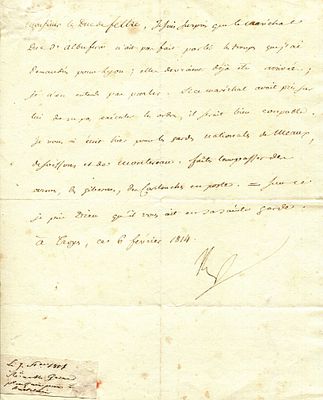 Monsieur le Duc de feltre, Je suis surpris que le maréchal
Duc d'albufera n'ait pas fait partir les troupes que j'ai
Demandées pour Lyon; elles devraient déjà être arrivées;
je n'en entends pas parler. Si ce maréchal avait pris sur
lui de ne pas exécuter les ordres, il serait bien coupable.
Je vous ai écrit hier pour les gardes nationales de Meaux,
de Soissons et de Montereau. faites leur passer des
armes, des gibernes, des Cartouches en poste. = Sur ce
je prie Dieu qu'il vous ait en sa sainte garde.
à Troyes, ce 6 février 1814.
Le 7